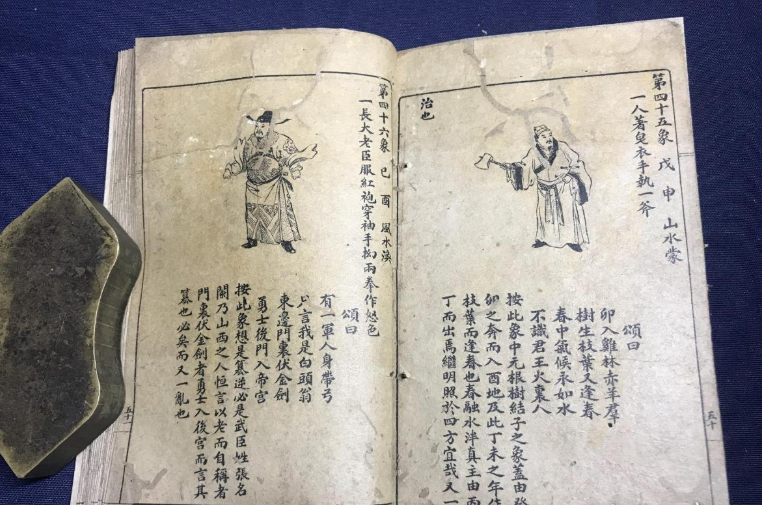 第四十五象 戊申 山水蒙
一人著皂衣手執一斧
頌曰
卯入雞林赤羊羣
樹生枝葉又逢春
春中氣候永如水
不識君王火裏人
按此象中元根樹結子之象蓋由癸
卯之奔而入酉地及此丁未之年作
枝葉而逢春也春融水泮真主由丙
丁而出焉繼明照於四方宜哉又一
治也
五十
第四十六象 巳酉 風水渙
一長大老臣服紅袍穿袖手抝兩拳作怒色
頌曰
有一軍人身帶弓
只言我是白頭翁
東邊門裏伏金劍
勇士後門入帝宮
按此象想是篡逆必是武臣姓張名
闕乃山西之人恒言以老而自稱者
門裏伏金劍者勇士入後宮而言其
篡也必矣而又一亂也
五十